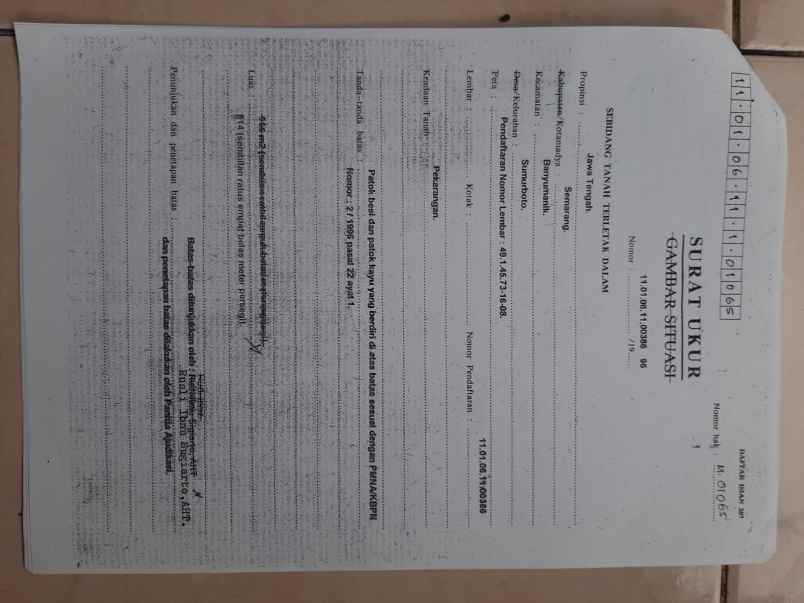 DAFTAR ISIAN 207
11.01.06.11.1.01065
Nomor hak : M. 01065
SURAT UKUR
GAMBAR SITUASI
11.01.06.11.00386 96
Nomor : /19
SEBIDANG TANAH TERLETAK DALAM
Propinsi : Jawa Tengah.
Kabupaten/Kotamadya Semarang.
Kecamatan : Banyumanik.
Desa/Kelurahan : Sumurboto.
Peta : Pendaftaran Nomor Lembar : 49.1.45.73-16-08.
11.01.06.11.00386
Lembar : Kotak : Nomor Pendaftaran :
Pekarangan.
Keadaan Tanah
Patok besi dan patok kayu yang berdiri di atas batas sesuai dengan PMNA/KBPN
Tanda-tanda batas : Nomor : 2 / 1996 pasal 22 ayat 1.
Luas
914 (sembilan ratus empat belas meter persegi).
Batas-batas ditunjukkan oleh :
Rusli Ibnu Sugiarto,AHT.
Penunjukan dan penetapan batas : dan penetapan batas dilakukan oleh Panitia Ajudikasi.